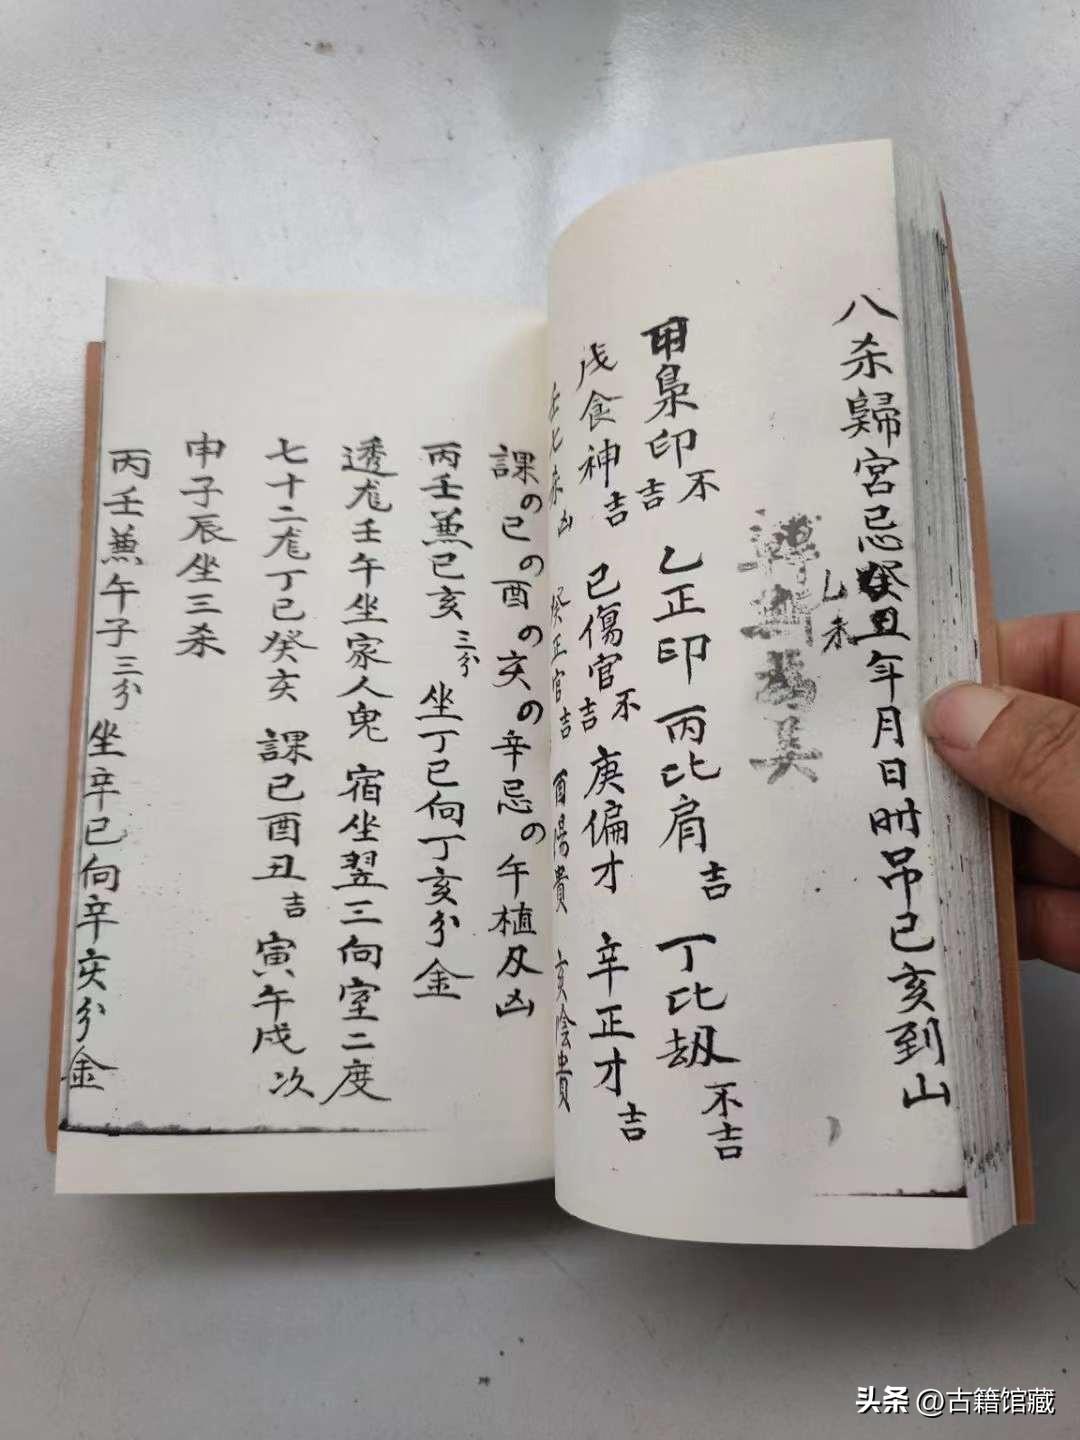 八杀歸宮忌癸丑年月日时吊己亥到山
乙未
甲梟印不吉 乙正印 丙比肩吉 丁比刼不吉
戊食神吉 己傷官不吉 庚偏才 辛正才吉
凶 癸正官吉 酉陽貴 亥陰貴
課の巳の酉の亥の辛忌の午植及凶
丙壬兼己亥三分 坐丁巳向丁亥分金
透龙壬午坐家人鬼 宿坐翌三向室二度
七十二龙丁巳癸亥 課巳酉丑吉 寅午戌次
申子辰坐三杀
丙壬兼午子三分 坐辛巳向辛亥分金
头条 @古籍馆藏